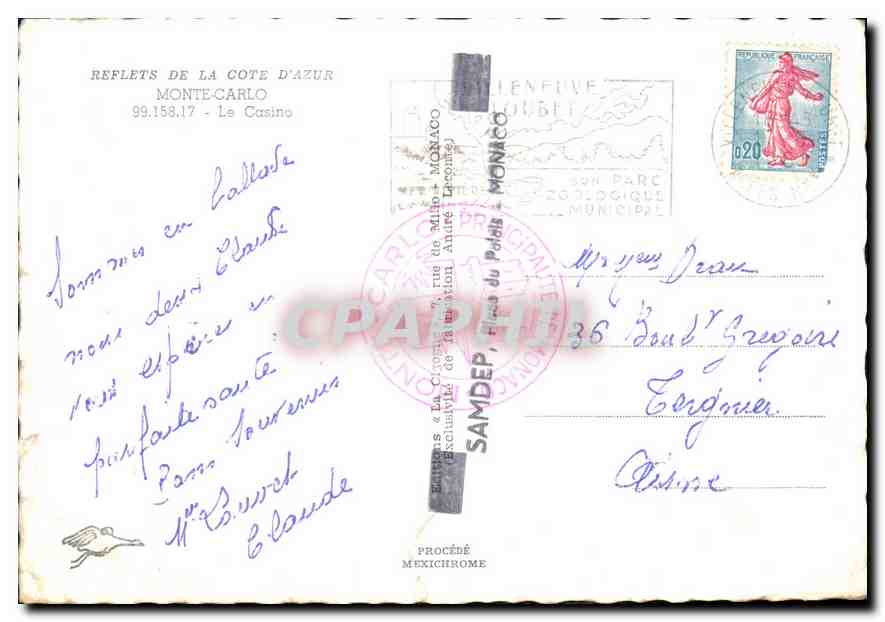 REFLETS DE LA COTE D'AZUR
MONTE-CARLO
99.158.17 - Le Casino
Sommes en ballade
nous deux Claude
Vous espère en
parfaite santé
Bons Souvenirs
Claude
PROCÉDÉ
MEXICHROME
Editions « La Cigogne » 7, rue de Millo - MONACO
(Exclusivité de fabrication André Leconte)
SAMDEP, Place du Palais - MONACO
VILLENEUVE
LOUBET
SON PARC
ZOOLOGIQUE
MUNICIPAL
REPUBLIQUE FRANÇAISE
0,20
POSTES
MONTE-CARLO PRINCIPAUTE DE MONACO
CPAPHIL
36 Boul Gregoire
Tergnier
Aisne